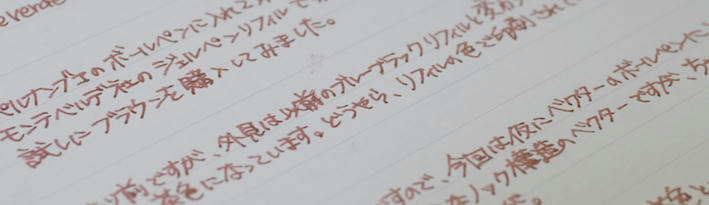 everde
ペルナンブコのボールペンに入れて
モンテベルデ社のジェルペンリフィルで
試しにブラウンを購入してみました。
前ですが、外見は以前のブルーブラックリフィルと変わ
茶色になっています。どうやら、リフィルの色で印刷され
すので、今回は仮にベクターのボールペンに
ノック構造のベクターですが、